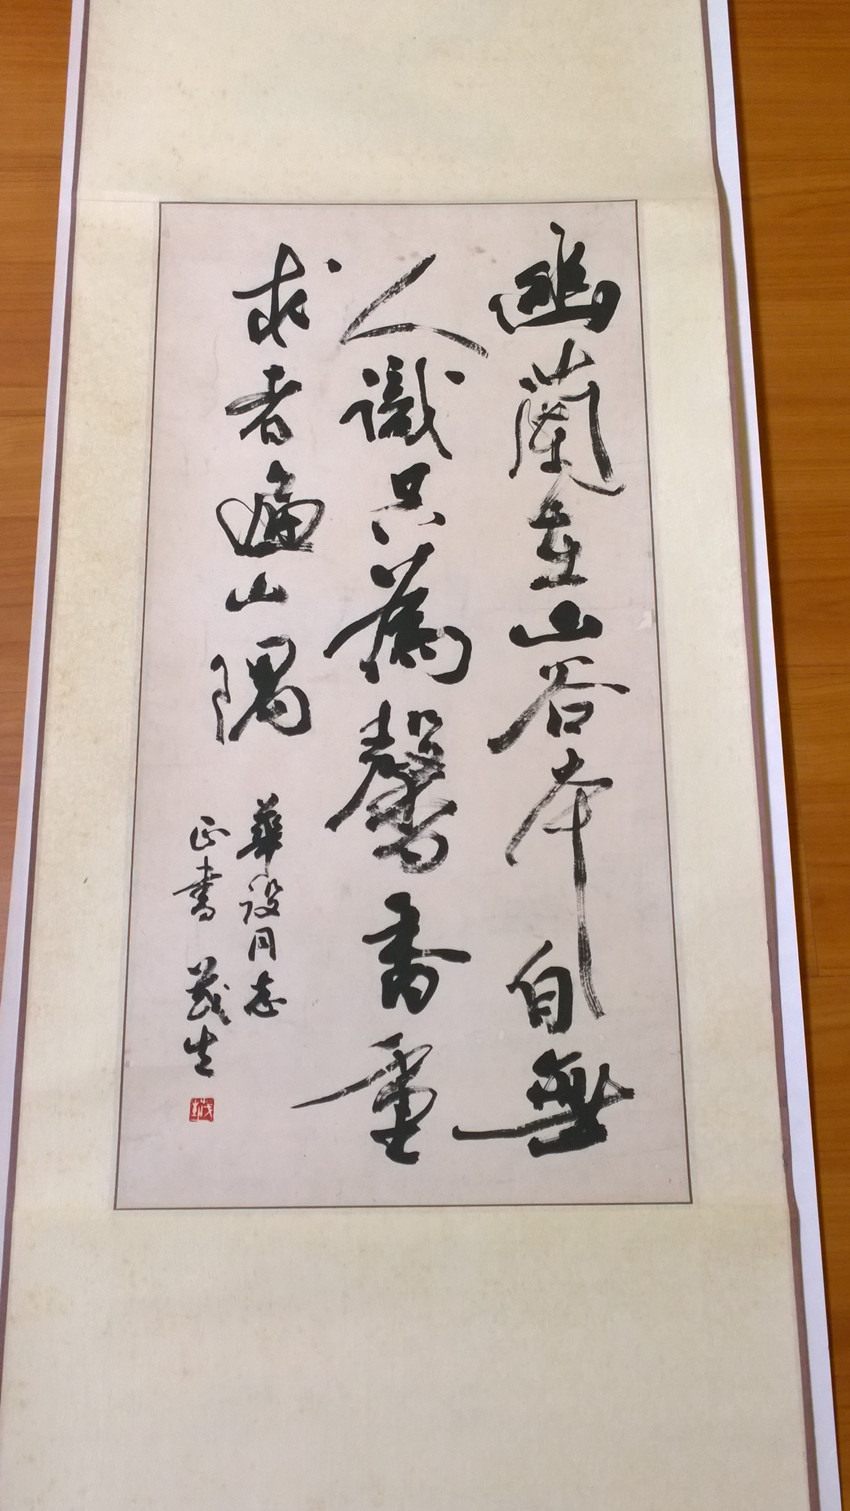 幽蘭在山谷本自無
人識只為馨香重
求者遍山隅
華設同志
正書 茂生